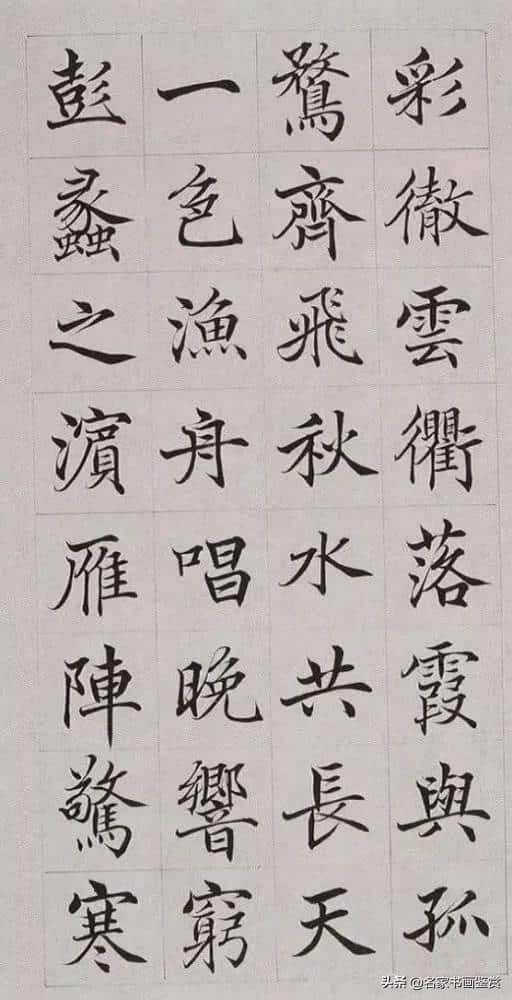 彩徹雲衢落霞與孤
鶩齊飛秋水共長天
一色漁舟唱晚響窮
彭蠡之濵雁陣驚寒
头条 @名家书画鉴赏